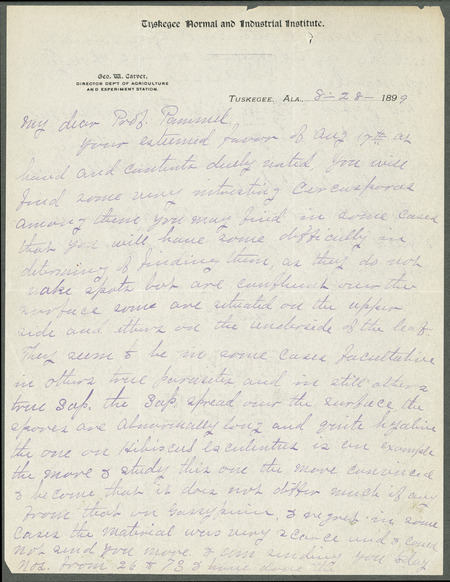 Tuskegee Normal and Industrial Institute.
Geo. W. Carver,
DIRECTOR DEP'T OF AGRICULTURE
AND EXPERIMENT STATION.
TUSKEGEE, ALA., 8-28- 1899
My dear Prof. Pammel,
Your esteemed favor of Aug 17th at
hand and contents duely noted, you will
find some very interesting Cercosporas
among them you may find in some cases
that you will have some difficulty in
finding them, as they do not
make spots but are confluent over the
surface some are situated on the upper
side and others on the underside of the leaf
They seem to be in some cases facultative
in others true parasites and in still others
true Sap. the Sap. spread over the surface the
spores are abnormally long and quite hyaline
the one on Hibiscus Esculentus is an example
the more I study this one the more convinced
I become, that it does not differ much if any
from that on I regret in some
cases the material was very scarce and I could
not send you more. I am sending you today
Nos. from 26 to 73 I have done the